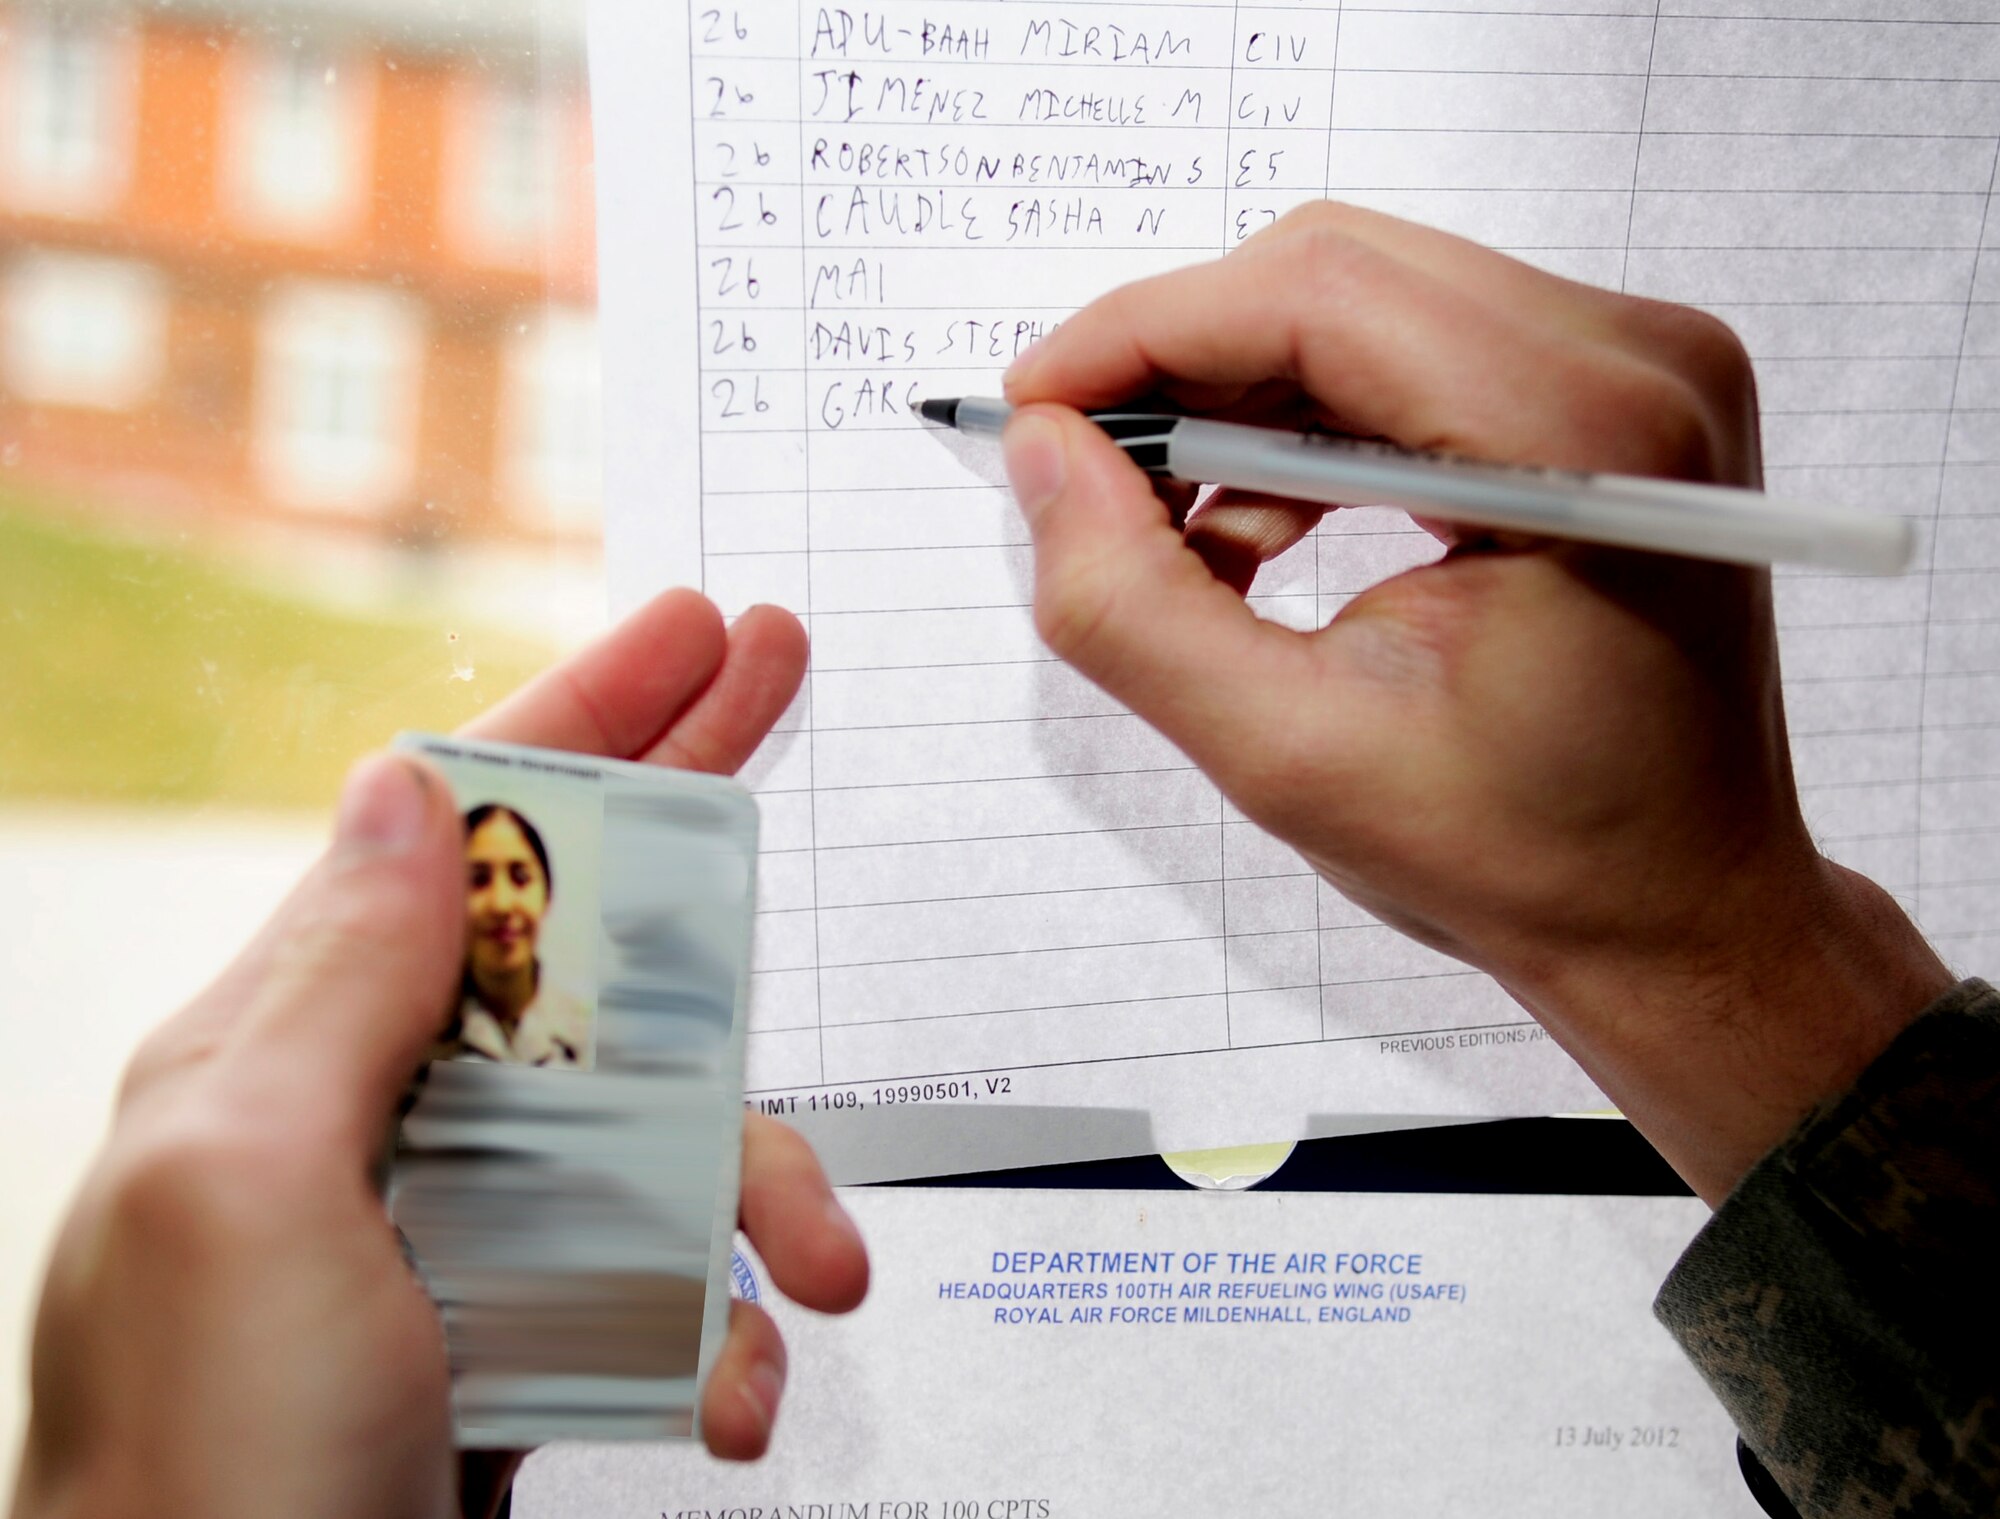 26 ADU-BAAH MIRIAM CIV
26 JIMENEZ MICHELLE M CIV
26 ROBERTSON BENJAMIN S E5
26 CAUDLE SASHA N
26 MAI
26 DAVIS STEPH
26 GARC
PREVIOUS EDITIONS AR
IMT 1109, 19990501, V2
DEPARTMENT OF THE AIR FORCE
HEADQUARTERS 100TH AIR REFUELING WING (USAFE)
ROYAL AIR FORCE MILDENHALL, ENGLAND
13 July 2012
MEMORANDUM FOR 100 CPTS